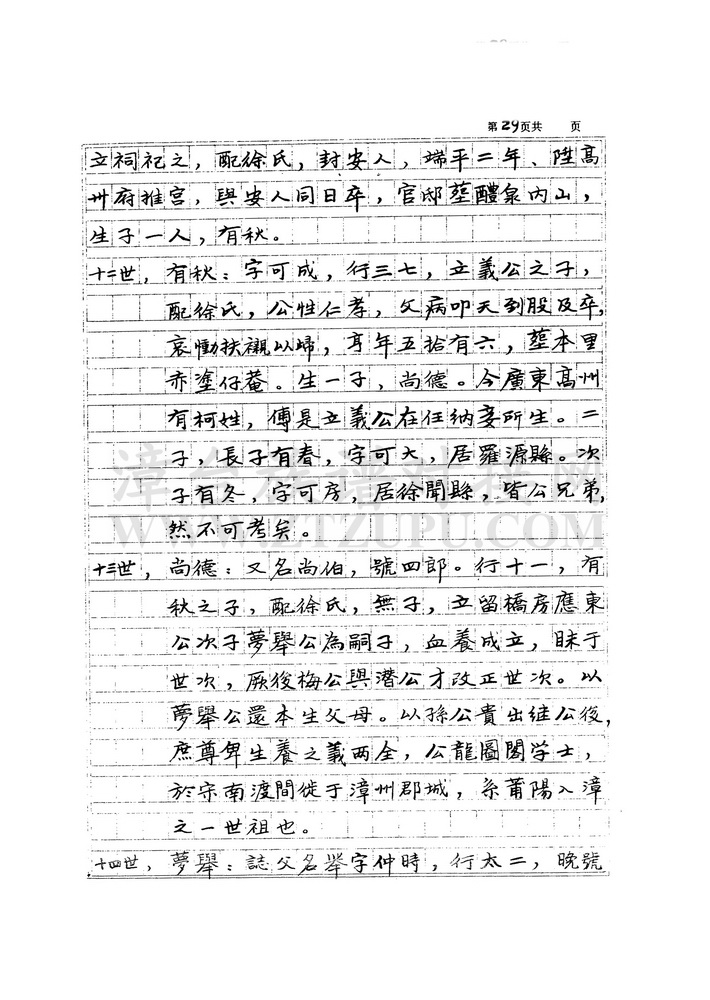 第29页共 页
立祠祀之，配徐氏，封安人，端平二年、陞高
州府推官，與安人同日卒，官邸塟醴泉內山，
生子一人，有秋。
十二世，有秋：字可成，行三七，立義公之子，
配徐氏，公性仁孝，父病叩天到股及卒，
哀慟扶櫬以歸，享年五拾有六，塟本里
赤塗仔菴。生一子，尚德。今廣東高州
有柯姓，傳是立義公在任納妾所生。二
子，長子有春，字可大，居羅源縣。次
子有冬，字可房，居徐聞縣，皆公兄弟，
然不可考矣。
十三世，尚德：又名尚伯，號四郎。行十一，有
秋之子，配徐氏，無子，立留橋房應東
公次子夢舉公為嗣子，血養成立，昧于
世次，厥後梅公與潛公才改正世次。以
夢舉公還本生父母。以孫公貴出继公後，
庶尊卑生養之義两全，公龍圖閣学士，
於宋南渡間徙于漳州郡城，系莆陽入漳
之一世祖也。
十四世，夢舉：誌父名举字仲時，行太二，晚號
漳台族谱对接网
WWW.ZTZUPU.COM